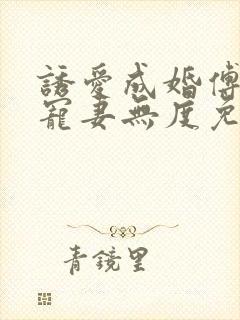 誘愛成婚傅
寵妻無度免
青鏡里